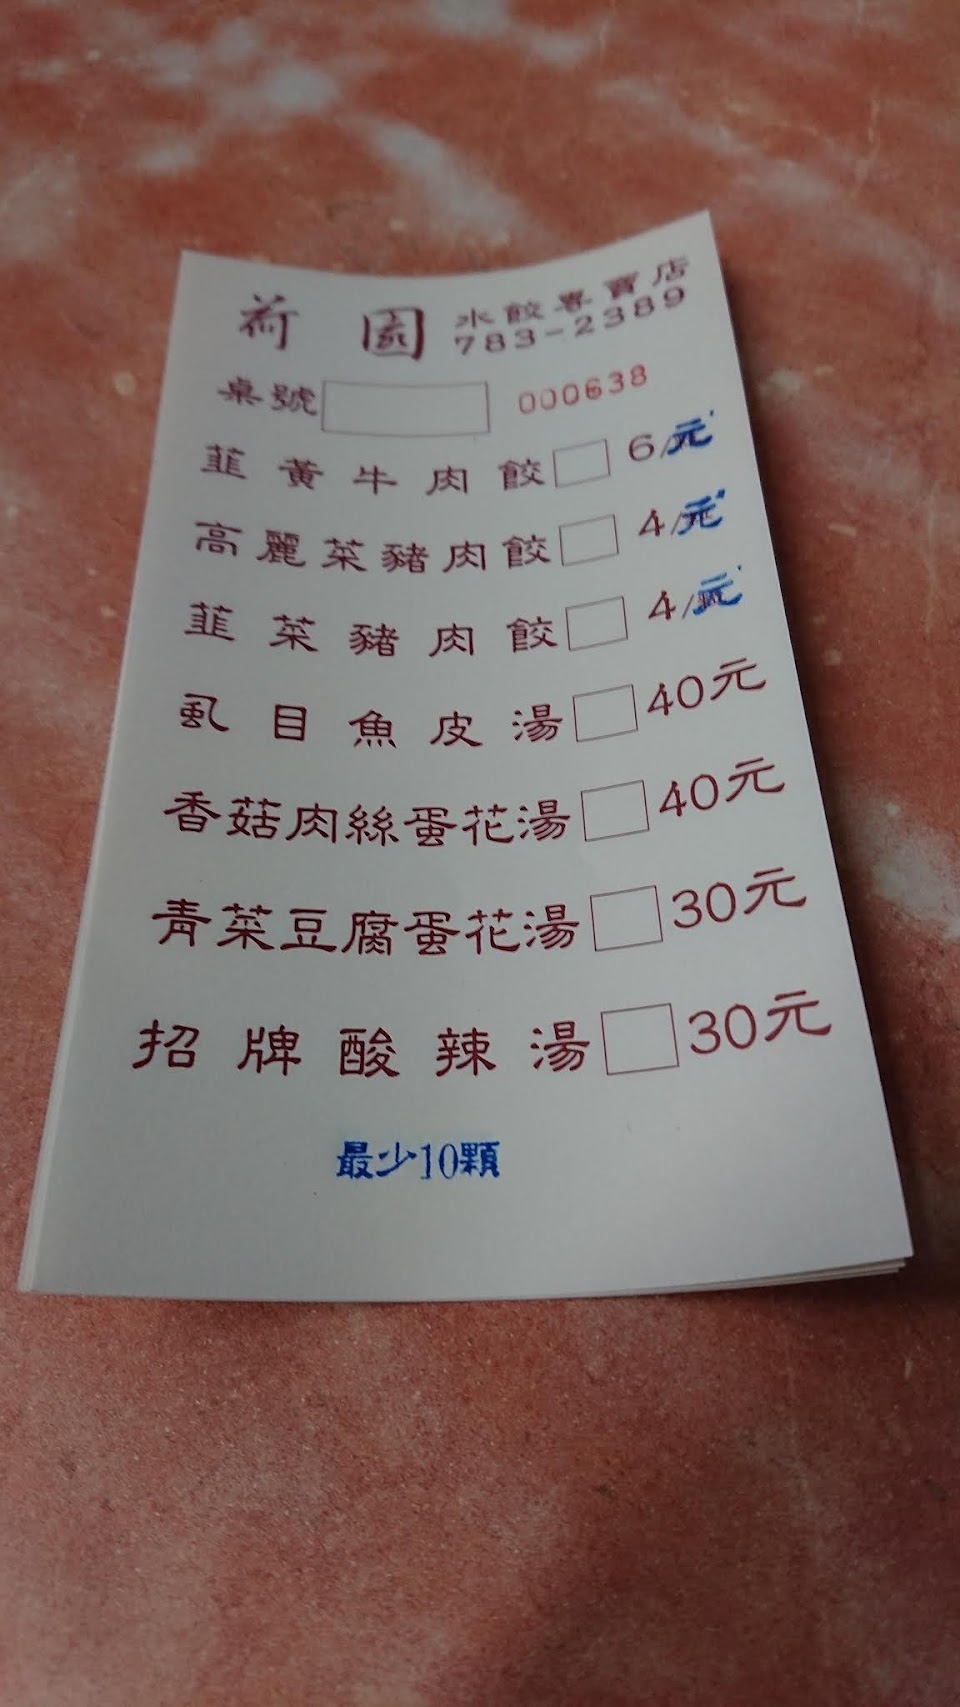 荷園 水餃專賣店
783-2389
桌號 000638
韮黃牛肉餃 6/元
高麗菜豬肉餃 4/元
韮菜豬肉餃 4/元
虱目魚皮湯 40元
香菇肉絲蛋花湯 40元
青菜豆腐蛋花湯 30元
招牌酸辣湯 30元
最少10顆